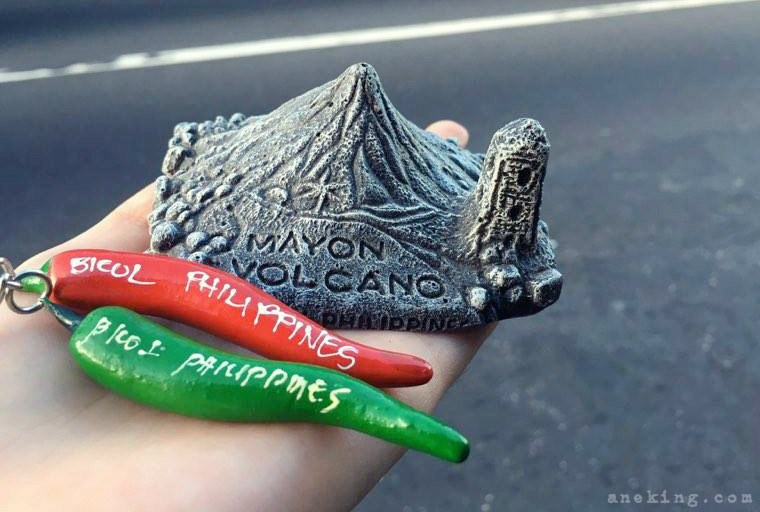 MAYON
VOLCANO
PHILIPPINE
BICOL PHILIPPINES
PHILIPPINES
aneking.com